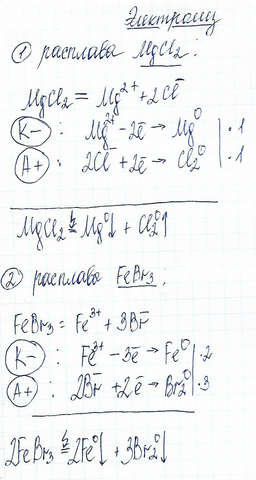 Электролиз
① расплава MgCl₂:
MgCl₂ = Mg²⁺ + 2Cl⁻
K- : Mg²⁺ - 2ē → Mg⁰ | ·1
A+ : 2Cl⁻ + 2ē → Cl₂⁰ | ·1
MgCl₂ = Mg⁰↓ + Cl₂⁰↑
② расплава FeBr₃:
FeBr₃ = Fe³⁺ + 3Br⁻
K- : Fe³⁺ - 3ē → Fe⁰ | ·2
A+ : 2Br⁻ + 2ē → Br₂⁰ | ·3
2FeBr₃ = 2Fe⁰↓ + 3Br₂⁰↓